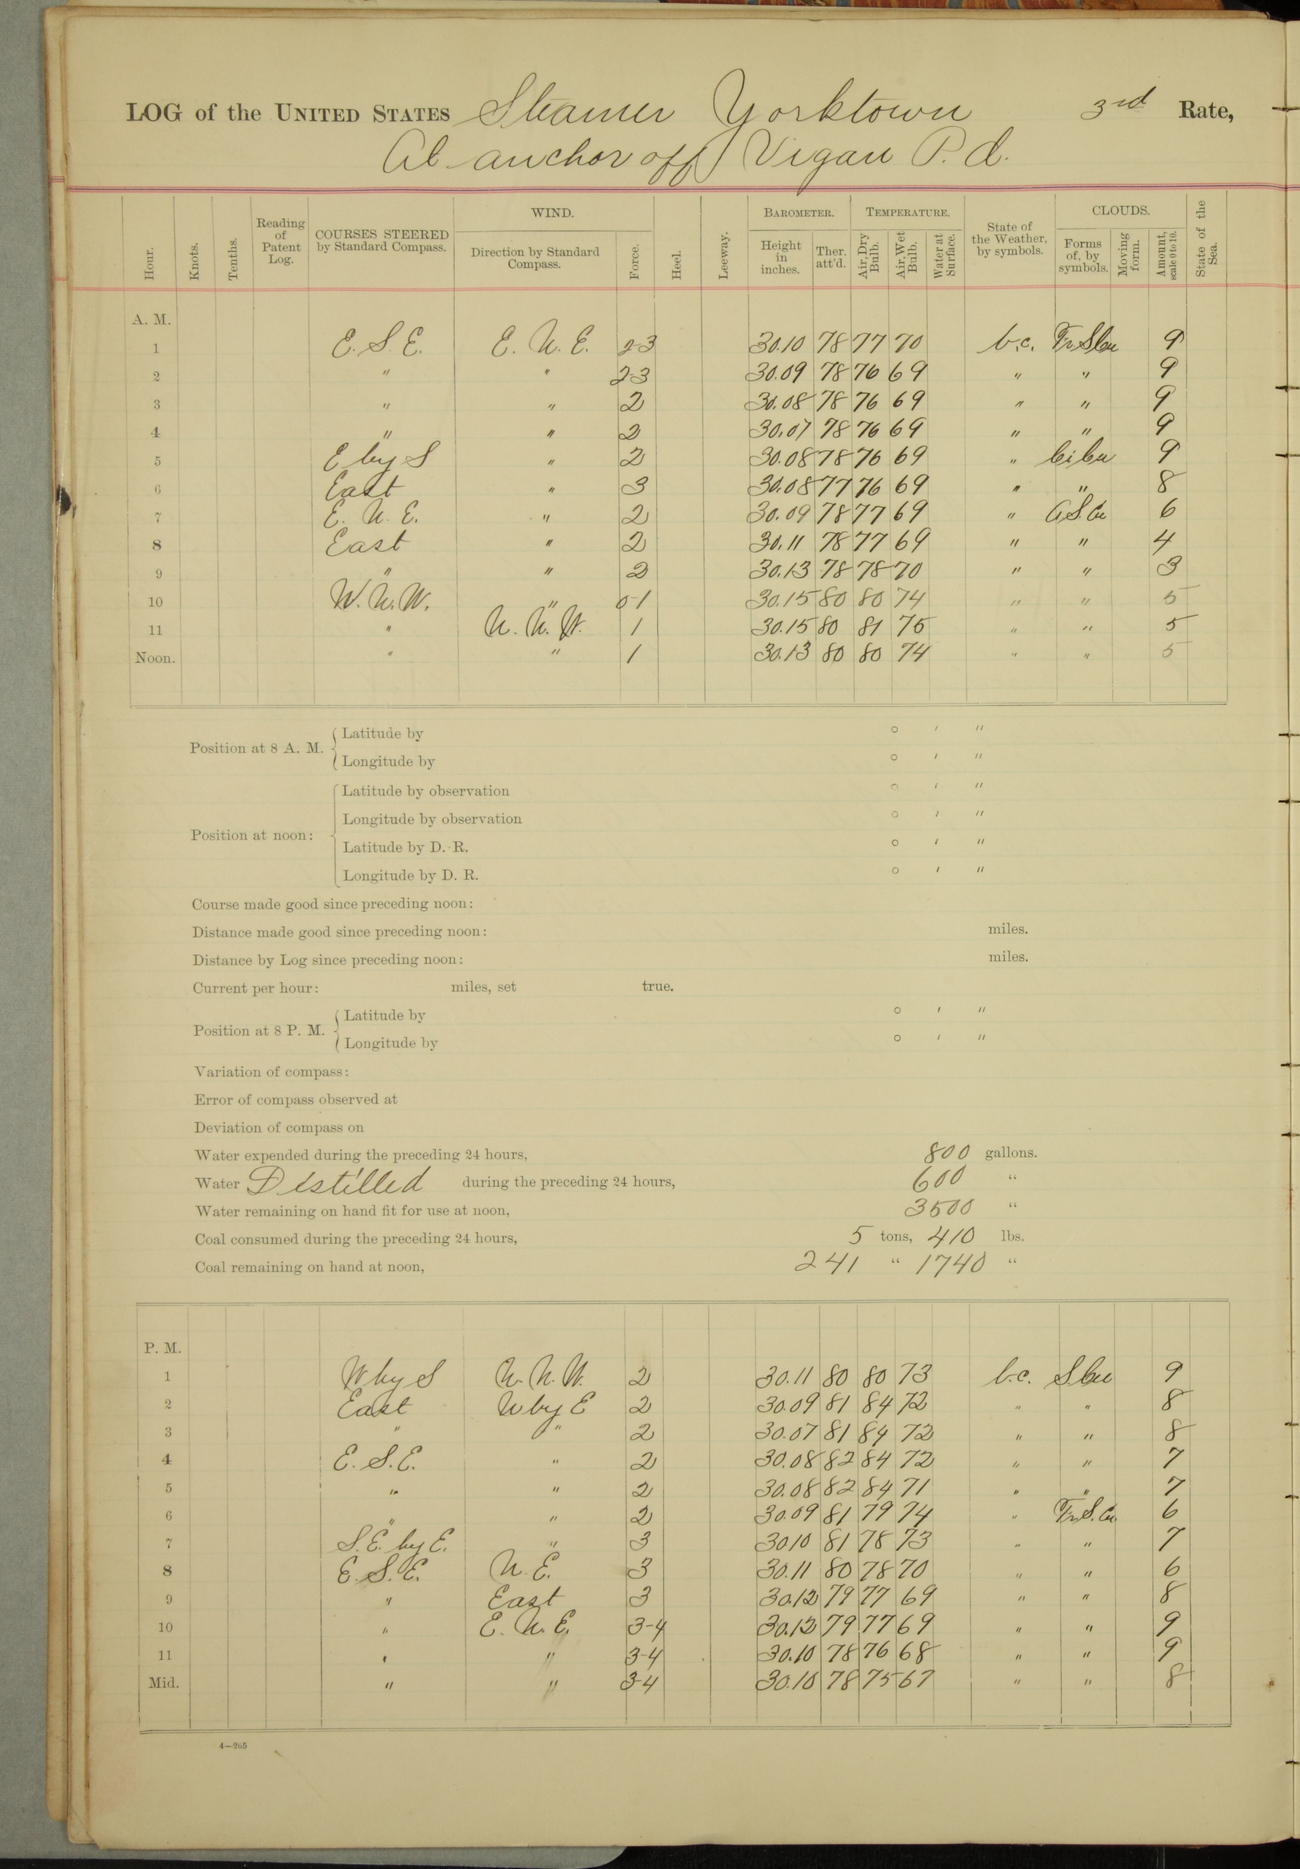 LOG of the UNITED STATES Steamer Yorktown 3rd Rate,
At anchor off Vigan P.I.
Hour. Knots. Tenths. Reading of Patent Log. COURSES STEERED by Standard Compass. WIND. Direction by Standard Compass. Force. Heel. Leeway. BAROMETER. Height in inches. Ther. att'd. TEMPERATURE. Air, Dry Bulb. Air, Wet Bulb. Water at Surface. State of the Weather, by symbols. CLOUDS. Forms of, by symbols. Moving form. Amount, scale 0 to 10. State of the Sea.
A. M.
1 E. S. E. E. N. E. 2-3 30.10 78 77 70 b.c. Fr. S.Cu 9
2 " " 2-3 30.09 78 76 69 " " 9
3 " " 2 30.08 78 76 69 " " 9
4 " " 2 30.07 78 76 69 " " 9
5 E by S " 2 30.08 78 76 69 " Ci Cu 9
6 East " 3 30.08 77 76 69 " " 8
7 E. N. E. " 2 30.09 78 77 69 " S.Cu 6
8 East " 2 30.11 78 77 69 " " 4
9 " " 2 30.13 78 78 70 " " 3
10 W. N. W. " 0-1 30.15 80 80 74 " " 5
11 " N. N. W. 1 30.15 80 81 75 " " 5
Noon. " " 1 30.13 80 80 74 " " 5
Position at 8 A. M. { Latitude by ° ' "
Longitude by ° ' "
Position at noon: { Latitude by observation ° ' "
Longitude by observation ° ' "
Latitude by D. R. ° ' "
Longitude by D. R. ° ' "
Course made good since preceding noon:
Distance made good since preceding noon: miles.
Distance by Log since preceding noon: miles.
Current per hour: miles, set true.
Position at 8 P. M. { Latitude by ° ' "
Longitude by ° ' "
Variation of compass:
Error of compass observed at
Deviation of compass on
Water expended during the preceding 24 hours, 800 gallons.
Water Distilled during the preceding 24 hours, 600 "
Water remaining on hand fit for use at noon, 3500 "
Coal consumed during the preceding 24 hours, 5 tons, 410 lbs.
Coal remaining on hand at noon, 241 " 1740 "
P. M.
1 W by S N. N. W. 2 30.11 80 80 73 b.c. S Cu 9
2 East N by E 2 30.09 81 84 72 " " 8
3 " " 2 30.07 81 84 72 " " 8
4 E. S. E. " 2 30.08 82 84 72 " " 7
5 " " 2 30.08 82 84 71 " " 7
6 " " 2 30.09 81 79 74 " Fr. S. Cu 6
7 S. E. by E. " 3 30.10 81 78 73 " " 7
8 E. S. E. N. E. 3 30.11 80 78 70 " " 6
9 " East 3 30.12 79 77 69 " " 8
10 " E. N. E. 3-4 30.12 79 77 69 " " 9
11 " " 3-4 30.10 78 76 68 " " 9
Mid. " " 3-4 30.10 78 75 67 " " 8
4—265